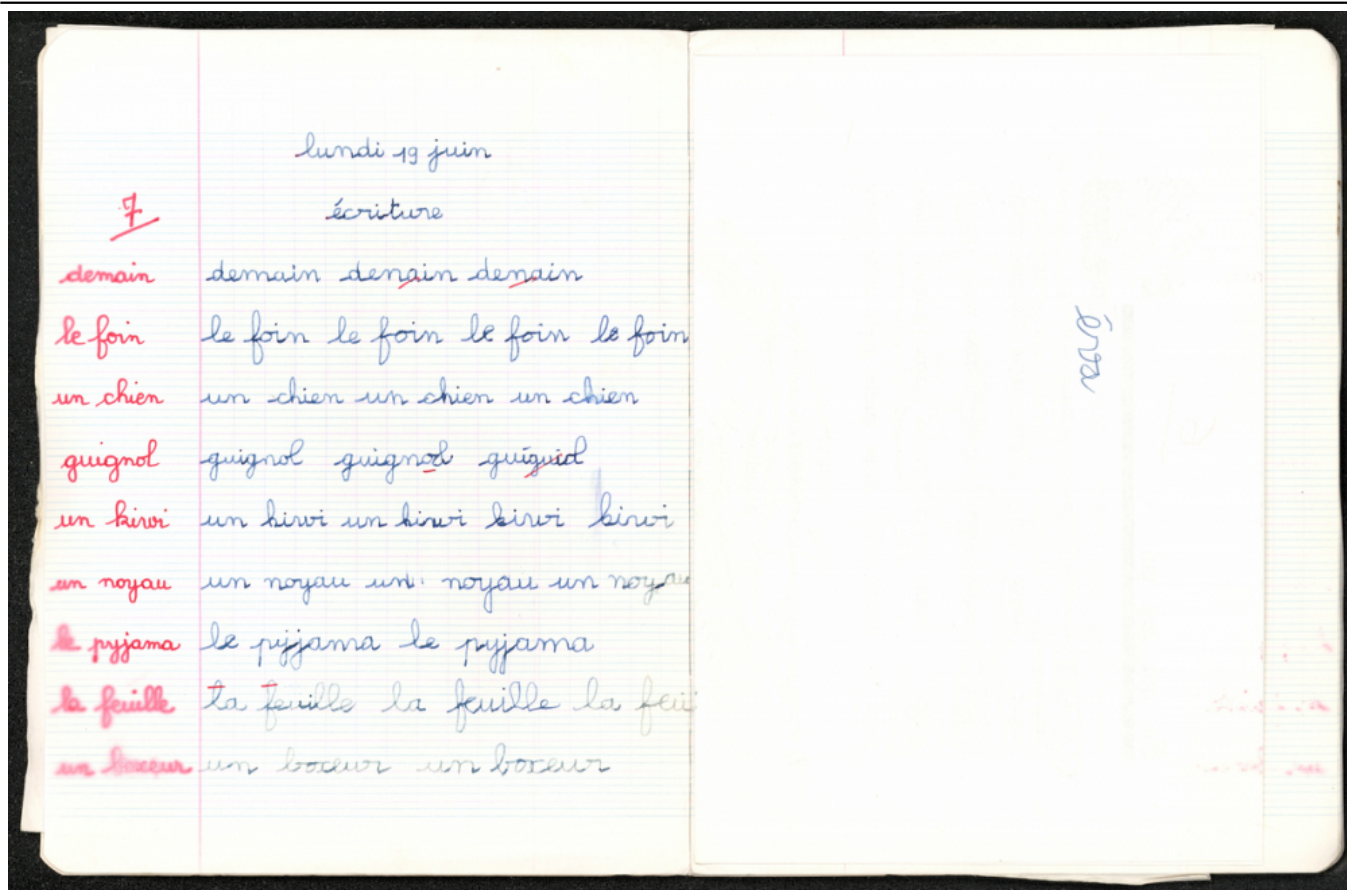 lundi 19 juin
7 écriture
demain demain denain denain
le foin le foin le foin le foin le foin
un chien un chien un chien un chien
guignol guignol guignol guiguid
un kiwi un kiwi un kiwi kiwi kiwi
un noyau un noyau un noyau un noyau
le pyjama le pyjama le pyjama
la feuille ta feuille la feuille la feui
un boxeur un boxeur un boxeur